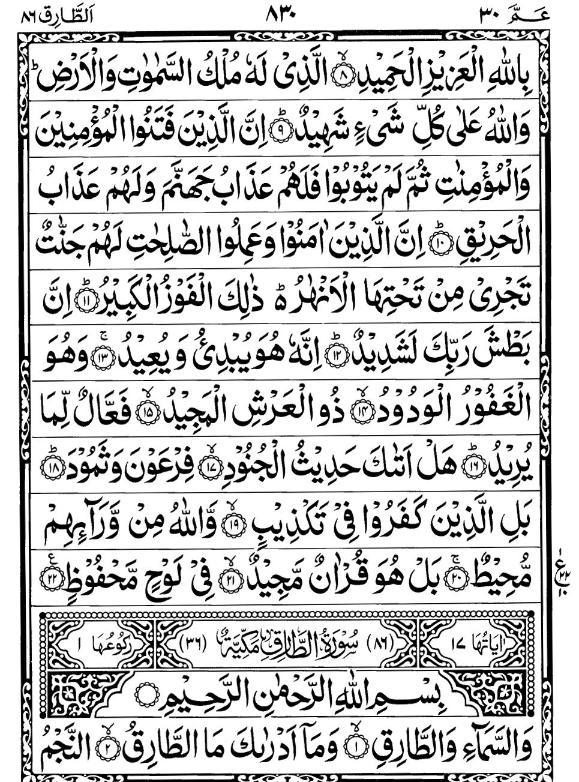 عَمَّ ٣٠ ٨٣٠ اَلطَّارِق ٨٦
بِاللّٰهِ الْعَزِيْزِ الْحَمِيْدِۙ‏﴿٨﴾ الَّذِىْ لَهٗ مُلْكُ السَّمٰوٰتِ وَالْاَرْضِؕ
وَاللّٰهُ عَلٰى كُلِّ شَىْءٍ شَهِيْدٌؕ‏﴿٩﴾ اِنَّ الَّذِيْنَ فَتَنُوا الْمُؤْمِنِيْنَ
وَالْمُؤْمِنٰتِ ثُمَّ لَمْ يَتُوْبُوْا فَلَهُمْ عَذَابُ جَهَنَّمَ وَلَهُمْ عَذَابُ
الْحَرِيْقِؕ‏﴿١٠﴾ اِنَّ الَّذِيْنَ اٰمَنُوْا وَعَمِلُوا الصّٰلِحٰتِ لَهُمْ جَنّٰتٌ
تَجْرِىْ مِنْ تَحْتِهَا الْاَنْهٰرُ ؕ ذٰلِكَ الْفَوْزُ الْكَبِيْرُؕ‏﴿١١﴾ اِنَّ
بَطْشَ رَبِّكَ لَشَدِيْدٌؕ‏﴿١٢﴾ اِنَّهٗ هُوَ يُبْدِئُ وَيُعِيْدُۚ‏﴿١٣﴾ وَهُوَ
الْغَفُوْرُ الْوَدُوْدُۙ‏﴿١٤﴾ ذُو الْعَرْشِ الْمَجِيْدُۙ‏﴿١٥﴾ فَعَّالٌ لِّمَا
يُرِيْدُؕ‏﴿١٦﴾ هَلْ اَتٰٮكَ حَدِيْثُ الْجُنُوْدِۙ‏﴿١٧﴾ فِرْعَوْنَ وَثَمُوْدَؕ‏﴿١٨﴾
بَلِ الَّذِيْنَ كَفَرُوْا فِىْ تَكْذِيْبٍۙ‏﴿١٩﴾ وَّاللّٰهُ مِنْ وَّرَآٮِٕهِمْ
مُّحِيْطٌۚ‏﴿٢٠﴾ بَلْ هُوَ قُرْاٰنٌ مَّجِيْدٌۙ‏﴿٢١﴾ فِىْ لَوْحٍ مَّحْفُوْظٍ‏﴿٢٢﴾
ع ٢٢ ١٠
اٰيَاتُهَا ١٧ (٨٦) سُوْرَةُ الطَّارِقِ مَكِّيَّةٌ (٣٦) رُكُوْعُهَا ١
بِسْمِ اللّٰهِ الرَّحْمٰنِ الرَّحِيْمِ
وَالسَّمَآءِ وَالطَّارِقِۙ‏﴿١﴾ وَمَاۤ اَدْرٰٮكَ مَا الطَّارِقُۙ‏﴿٢﴾ النَّجْمُ